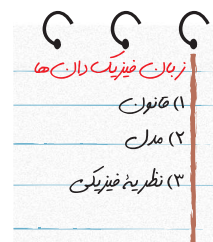 زبان فیزیک‌دان‌ها
۱) قانون
۲) مدل
۳) نظریهٔ فیزیکی